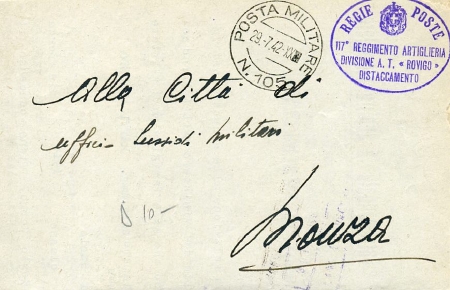 POSTA MILITARE
29.7.42.XX
N. 105
REGIE POSTE
117° REGGIMENTO ARTIGLIERIA
DIVISIONE A. T. « ROVIGO »
DISTACCAMENTO
Alla Città di
uffici Sussidi Militari
Monza
10-